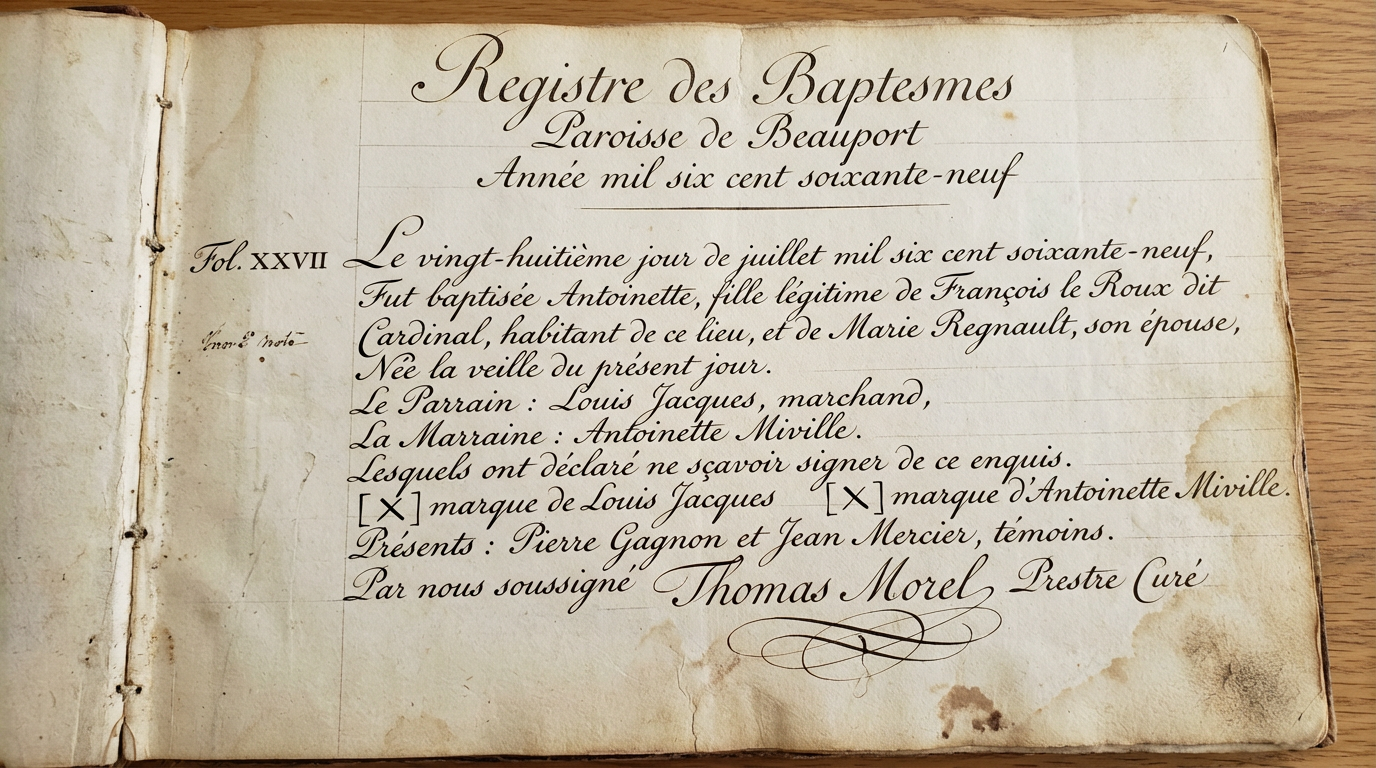 Registre des Baptesmes
Paroisse de Beauport
Année mil six cent soixante-neuf
Fol. XXVII
Le vingt-huitième jour de juillet mil six cent soixante-neuf,
Fut baptisée Antoinette, fille légitime de François le Roux dit
Cardinal, habitant de ce lieu, et de Marie Regnault, son épouse,
Née la veille du présent jour.
Le Parrain : Louis Jacques, marchand,
La Marraine : Antoinette Miville.
Lesquels ont déclaré ne sçavoir signer de ce enquis.
[X] marque de Louis Jacques [X] marque d'Antoinette Miville.
Présents : Pierre Gagnon et Jean Mercier, témoins.
Par nous soussigné Thomas Morel Prestre Curé